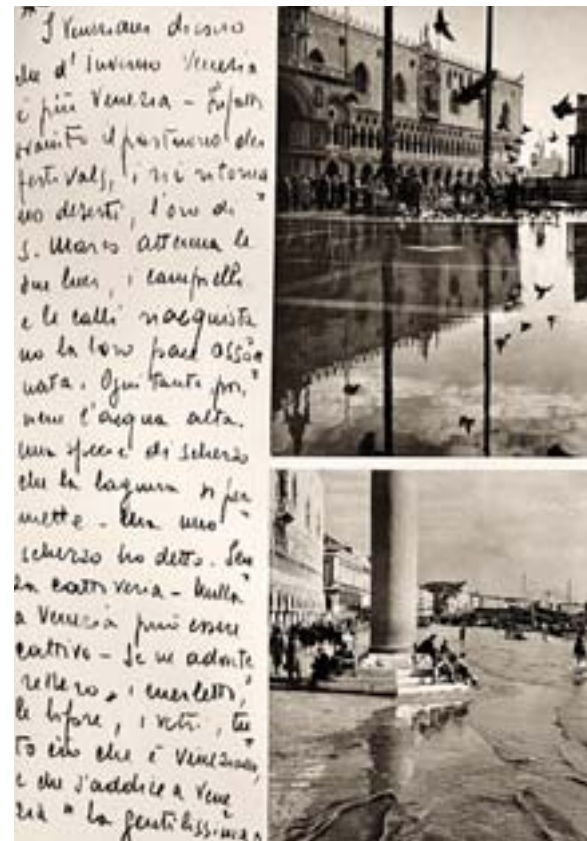 I Veneziani dicono
che d'inverno Venezia
è più Venezia – Infatti
svanito il frastuono dei
festivals, i rii ritorna
no deserti, l'oro di
S. Marco attenua le
sue luci, i campielli
e le calli riacquista
no la loro pace asson
nata. Ogni tanto poi,
viene l'acqua alta.
una specie di scherzo
che la laguna si per
mette – Ma uno
scherzo ho detto. Sen
za cattiveria – Nulla
a Venezia può essere
cattivo – Se ne adonte
rebbero, i merletti,
le bifore, i vetri, tut
to ciò che è Veneziano,
e che s'addice a Vene
zia "la gentilissima"